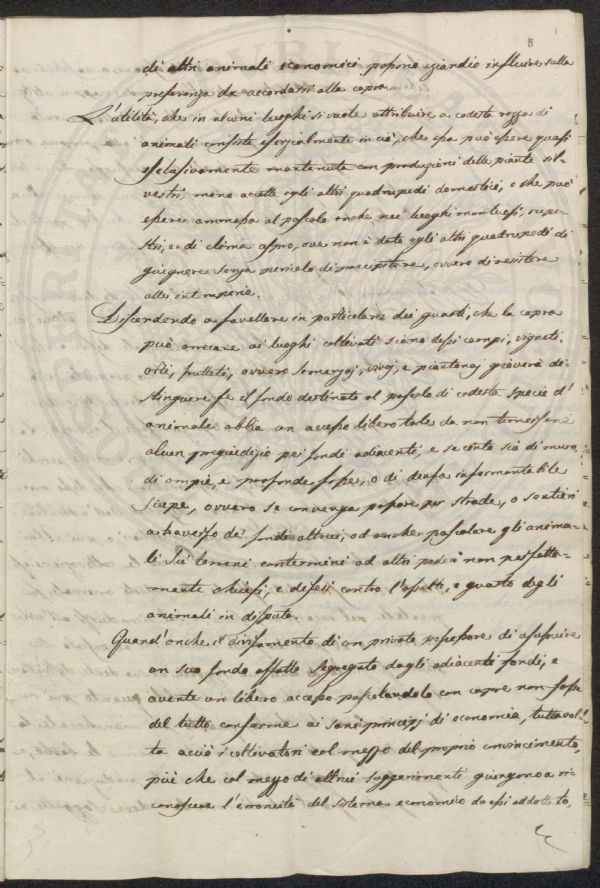 5
di altri animali economici possono eziandio influire sulla
preferenza da accordarsi alla capra.
L'utilità, che in alcuni luoghi si vuole attribuire a codesta razza di
animali consiste essenzialmente in ciò, che essa può essere quasi
esclusivamente mantenuta con produzioni delle piante sil-
vestri, meno accette agli altri quadrupedi domestici, e che può
essere ammessa al pascolo anche nei luoghi montuosi, rupe-
stri, e di clima aspro, ove non è dato agli altri quadrupedi di
giugnere senza pericolo di precipitare, ovvero di resistere
alle intemperie.
Discendendo a favellare in particolare dei guasti, che la capra
può arrecare ai luoghi coltivati siano dessi campi, vigneti,
orti, frutteti, ovvero semenzaj, vivaj, e piantonaj gioverà di-
stinguere se il fondo destinato al pascolo di codesta specie d'
animale abbia un accesso libero tale da non temersene
alcun pregiudizio pei fondi adiacenti, e se cinto sia di muro
di ampie, e profonde fosse, o di densa insormontabile
siepe, ovvero se convenga passare per strade, o sentieri
a traverso de' fondi altrui, od anche pascolare gli anima-
li su' terreni contermini ad altri poderi non perfetta-
mente chiusi, e difesi contro l'assalto, e guasto degli
animali in disputa.
Quand'anche il divisamento di un privato possessore di usufruire
un suo fondo affatto segregato dagli adiacenti fondi, e
avente un libero accesso pascolandolo con capre non fosse
del tutto conforme ai sani principj di economia, tuttavol-
ta acciò i coltivatori col mezzo del proprio convincimento,
più che col mezzo di altrui suggerimenti giungano a ri-
conoscere l'erroneità del sistema economico da essi addottato,